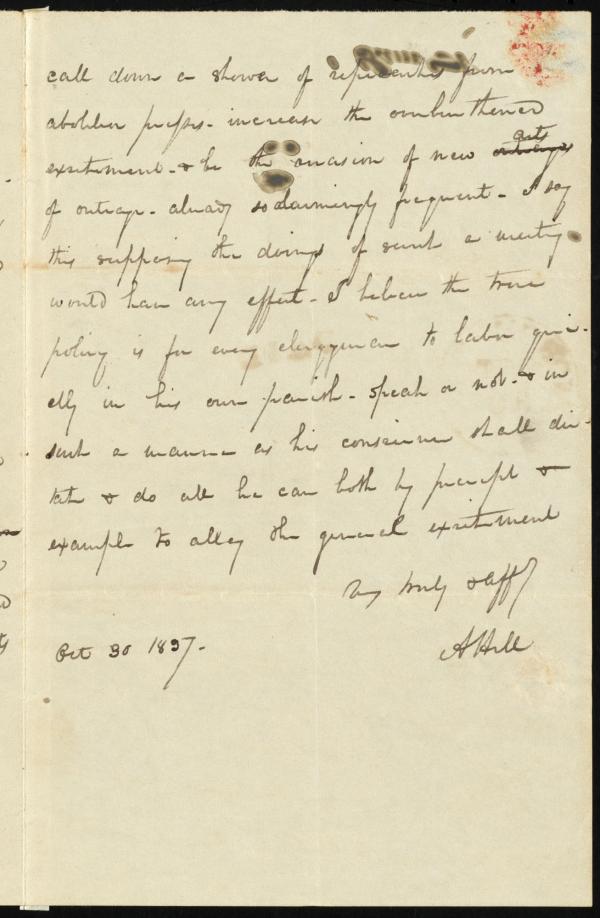 call down a shower of                 from
abolition presses - increase the overburthened
excitement - & be the occasion of new outrages acts
of outrage - already so alarmingly frequent - I say
this supposing the doings of such a meeting
would have any effect - I believe the true
policy is for every clergyman to labor qui-
etly in his own parish - speak or not - & in
such a manner as his conscience shall dic-
tate & do all he can both by precept &
example to allay the general excitement
Very truly & affy
Oct 30 1837. A Hill